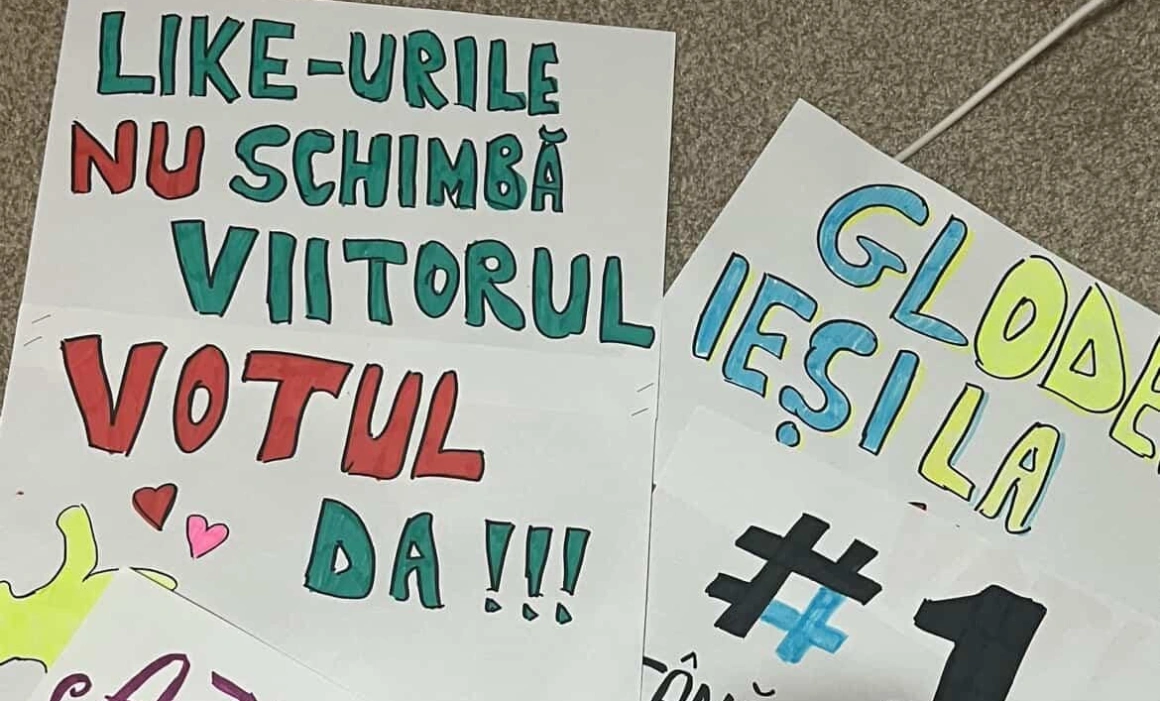 LIKE-URILE
NU SCHIMBĂ
VIITORUL
VOTUL
DA!!!
IEȘI LA
#1